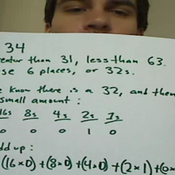 34
eater than 31, less than 63.
se 6 places, or 32s.
e know there is a 32, and then
small amount:
16s 8s 4s 2s
0 0 0 1 0
dd up:
(16×0)+(8×0)+(4×0)+(2×1)+(0×